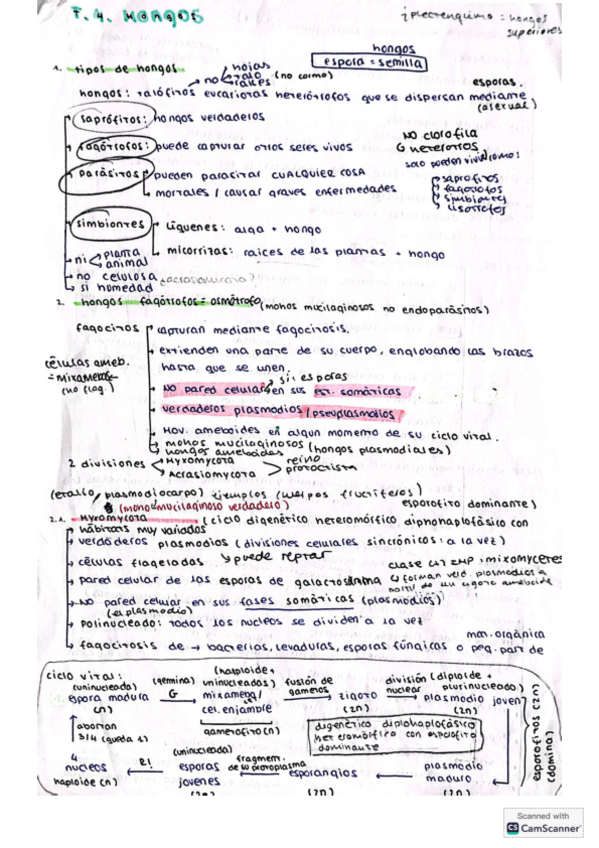 T.4. HONGOS
plectenquima = hongos superiores
hongos
espora = semilla
1. tipos de hongos
no hojas talo raíces (no cormo)
hongos: talófitos eucariotas heterótrofos que se dispersan mediante esporas.
(asexual)
saprófitos: hongos verdaderos
NO clorofila
heterotrofos
fagótrofos: puede capturar otros seres vivos
solo pueden vivir como:
parásitos pueden parasitar CUALQUIER COSA
saprofitos
fagotrofos
simbiontes
mortales / causar graves enfermedades
simbiontes líquenes: alga + hongo
micorrizas: raíces de las plantas + hongo
ni planta animal
no celulosa
si humedad
2. hongos fagótrofos = osmótrofo (mohos mucilaginosos no endoparásitos)
fagocitos capturan mediante fagocitosis.
extienden una parte de su cuerpo, englobando las brazos
hasta que se unen.
células ameb.
(no flag.)
sí: esporas
NO pared celular en sus est. somáticas
verdaderos plasmodios / pseuplasmodios
Mov. ameboides en algun momento de su ciclo vital.
mohos mucilaginosos (hongos plasmodiales)
hongos ameboides
2 divisiones Myxomycota Acrasiomycota reino protoctista
(etalio, plasmodiocarpo) ejemplos (cuerpos fructíferos)
(moho mucilaginoso verdadero)
esporofito dominante)
2.1. Myxomycota (ciclo digenético heteromórfico, diplohaplofásico con
hábitats muy variados
verdaderos plasmodios (divisiones celulares sincrónicos: a la vez)
células flageladas puede reptar
clase IMP: mixomycetes
forman verd. plasmodios a
pared celular de las esporas de galactosamina
NO pared celular en sus fases somáticas (plasmodios)
(el plasmodio)
polinucleado: todos los nucleos se dividen a la vez
mat. orgánica
fagocitosis de → bacterias, levaduras, esporas fúngicas o peq. part de
ciclo vital:
(uninucleada) (germina) (haploide + uninucleadas) fusión de gametos división nuclear (diploide + plurinucleado)
espora madura mixameba / cel. enjambre zigoto plasmodio joven
(n) (2n) (2n)
gametofito (n)
abortan
3/4 (queda 1)
digenético diplohaplofásico
heteromórfico con esporofito
dominante
esporofitos (2n)
(domina)
4 nucleos R! (uninucleada) esporas jovenes fragmen. de su protoplasma esporangios plasmodio maduro
haploide (n) (2n) (2n) (2n)
Scanned with
CS CamScanner